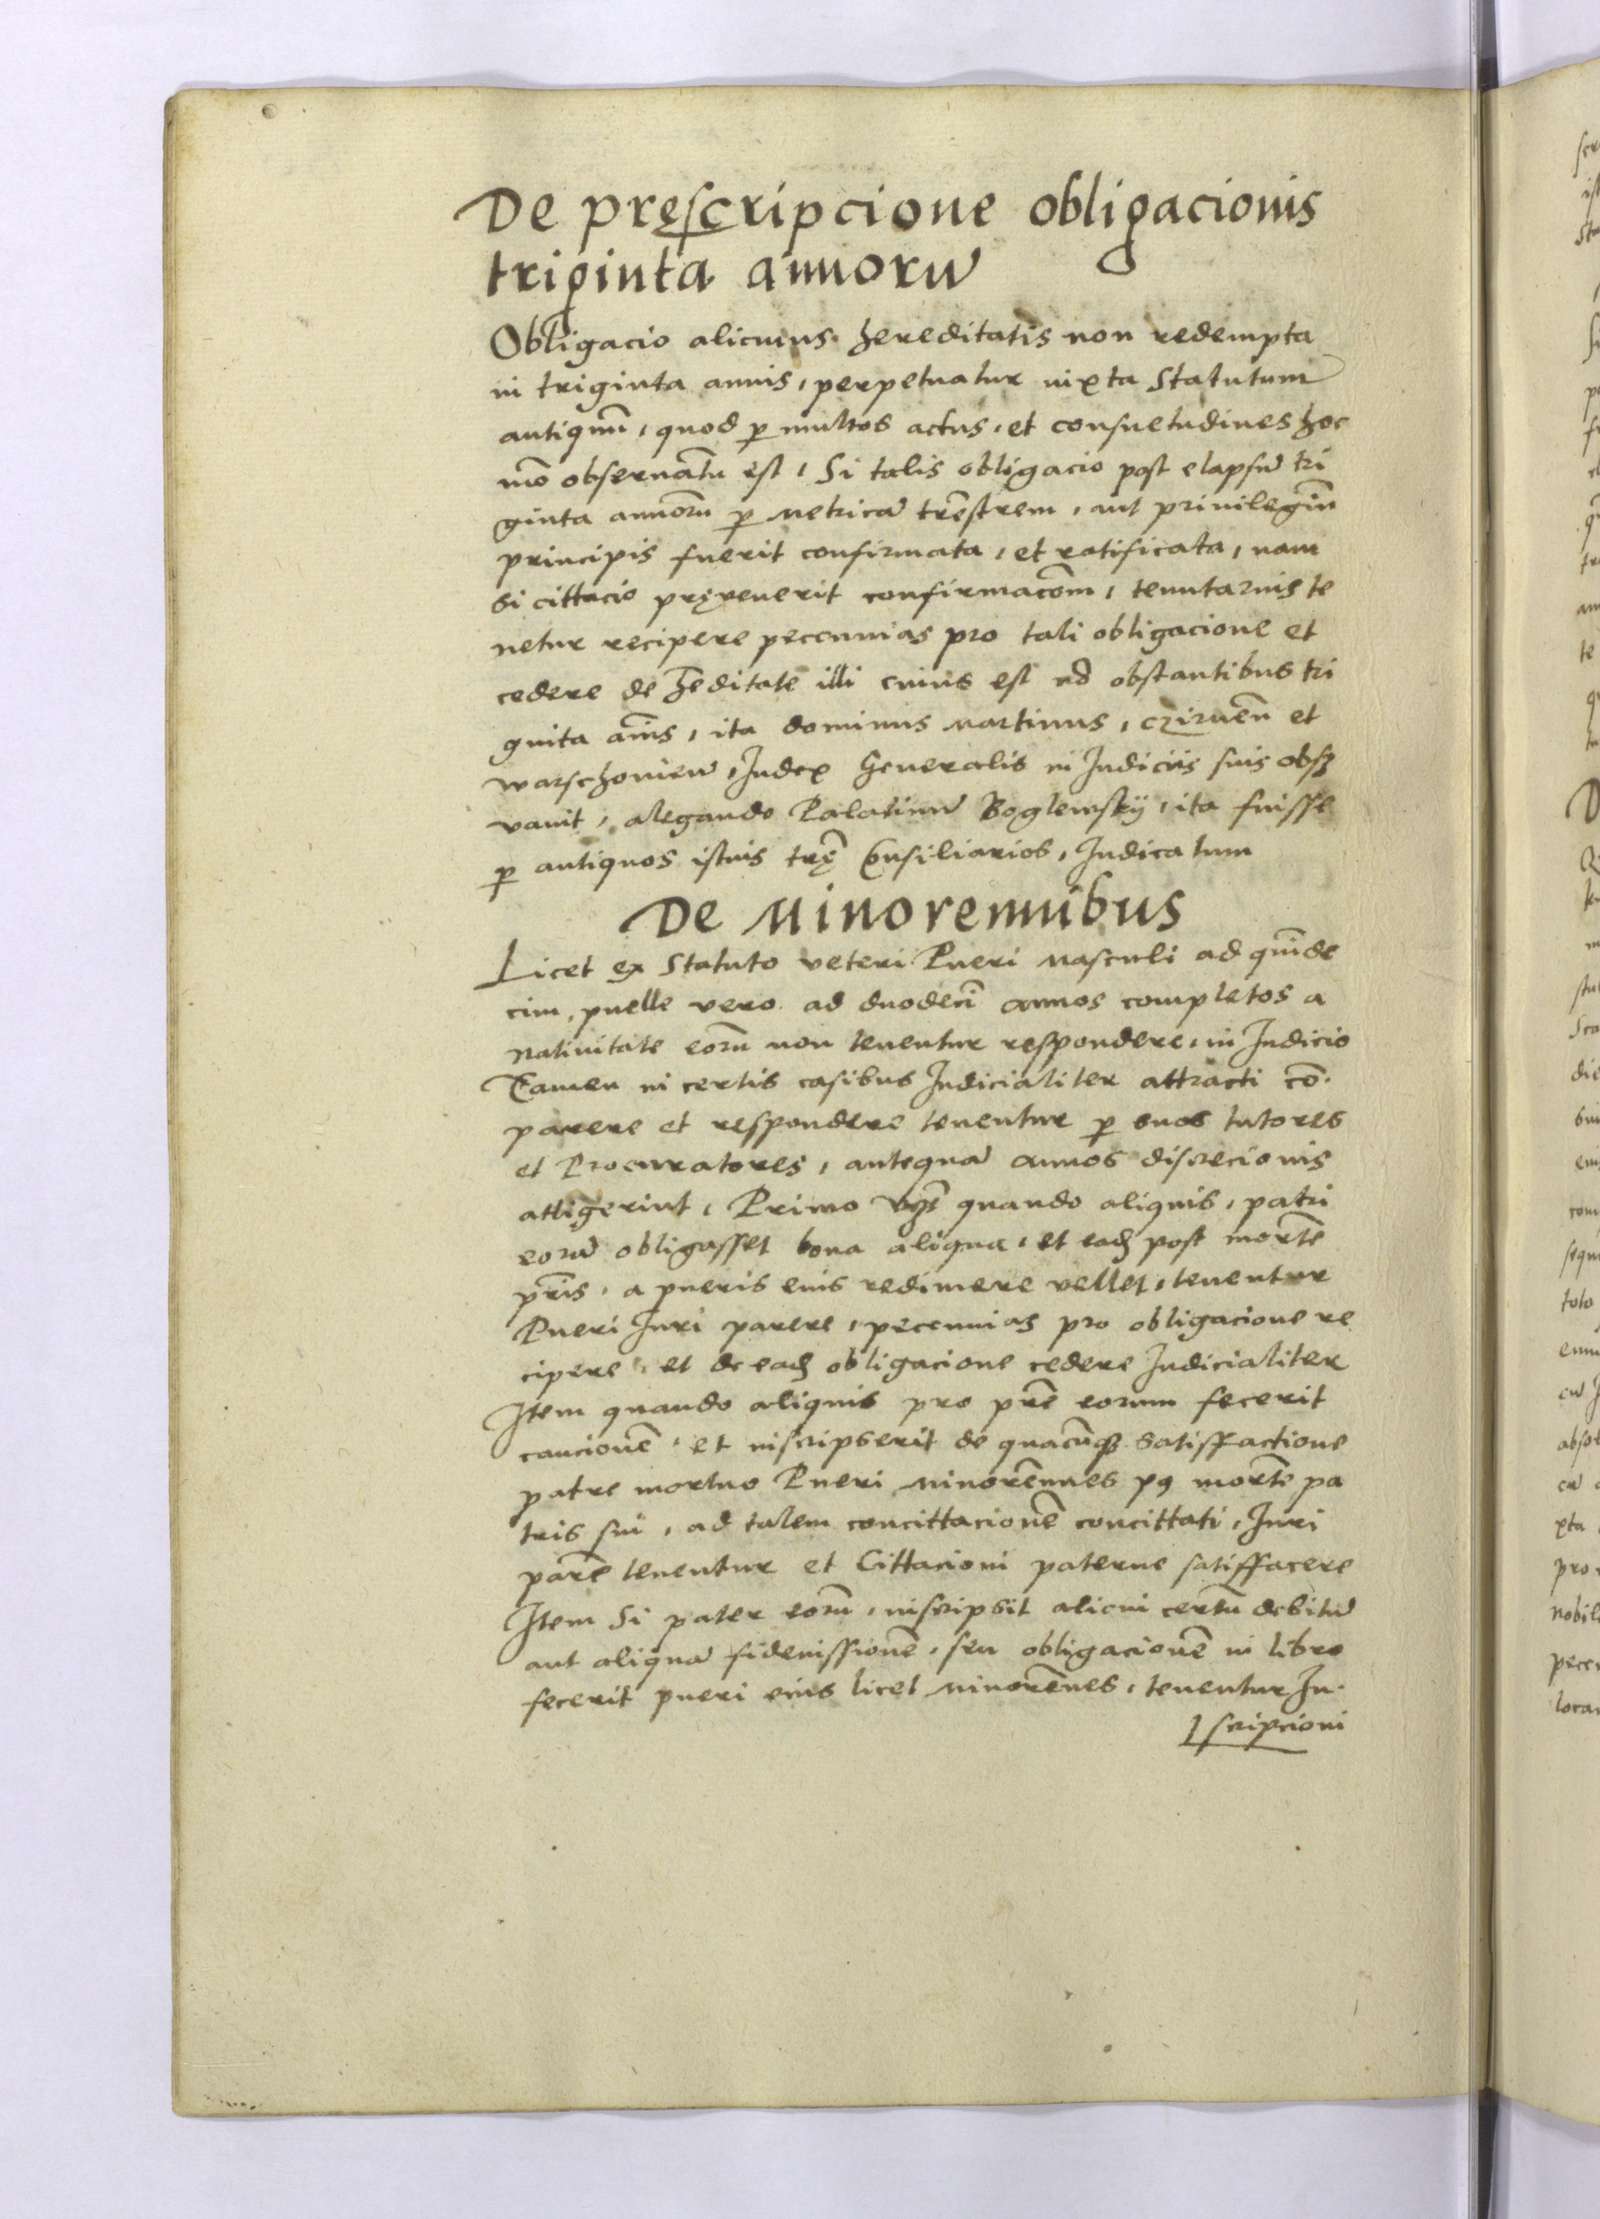 De pręscripcione obligacionis
triginta annorũ
Obligacio alicuius hereditatis non redempta
in triginta annis, perpetuatur iuxta Statutum
antiquũ, quod p multos actus, et consuetudines hoc
mõ obseruatũ est, Si talis obligacio post elapsũ tri
ginta annorũ p metricã trẽstrem, aut priuilegiũ
principis fuerit confirmata, et ratificata, nam
si cittacio pręuenerit confirmacõm, tenutarius te
netur recipere peccunias pro tali obligacione et
cedere de hẽditate illi cuius est nõ obstantibus tri
ginta ãnis, ita dominus Martinus, Czirneñ et
Warschouieñ, Iudex Generalis in Iudiciis suis obsʒ
vauit, alegando Palatinũ Boglewskÿ, ita fuisse
p antiquos istius trę̃ Consiliarios, Iudicatum
De Minorennibus
Licet ex Statuto veteri Pueri masculi ad quĩde
cim, puelle vero ad duodecĩ annos completos a
natiuitate eorũ non tenentur respondere, in Iudicio
Tamen in certis casibus Iudicialiter attracti cõ
parere et respondere tenentur p suos tutores
et Procuratores, antequã annos discrecionis
attigerint, Primo quando aliquis, patri
eorũ obligasset bona aliqua, et eadẽ post mortẽ
pr̃is, a pueris eius redimere vellet, tenentur
Pueri Iuri parere, peccunias pro obligacione re
cipere, et de eadẽ obligacione cedere Iudicialiter
Item quando aliquis pro pr̃e eorum fecerit
caucionẽ, et inscripserit de quacũqʒ satisffactione
patre mortuo Pueri minorẽnnes pꝰ mortẽ pa
tris sui, ad talem concittacionẽ concittati, Iuri
parẽ tenentur et Cittacioni paterne satisffacere
Item Si pater eorũ, inscripsit alicui certũ debitũ
aut aliquã fideiussionẽ, seu obligacionẽ in libro
fecerit pueri eius licet minorẽnes, tenentur In
scripcioni